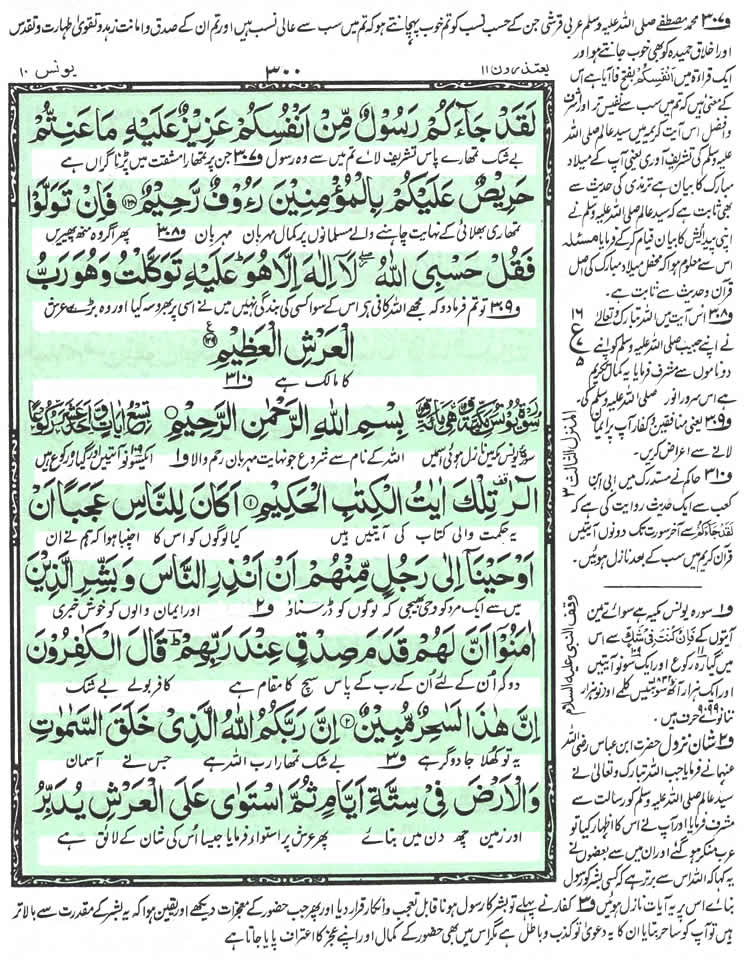 ف۳۰۷ محمد مصطفے صلی اللہ علیہ وسلم عربی قرشی جن کے حسب نسب کو تم خوب پہچانتے ہو کہ تم میں سب سے عالی نسب ہیں اور تم ان کے صدق و امانت زہد و تقویٰ طہارت و تقدس
اور اخلاق حمیدہ کو بھی خوب جانتے ہو اور
ایک قراءۃ میں اَنْفَسِکُمْ بفتح فا آیا ہے اس
کے معنی ہیں کہ تم میں سب سے نفیس تر اور اشرف
و افضل اس آیت کریمہ میں سید عالم صلی اللہ
علیہ وسلم کی تشریف آوری یعنی آپ کے میلاد
مبارک کا بیان ہے ترمذی کی حدیث سے
بھی ثابت ہے کہ سید عالم صلی اللہ علیہ وسلم نے
اپنی پیدائش کا بیان قیام کر کے فرمایا مسئلہ
اس سے معلوم ہوا کہ محفل میلاد مبارک کی اصل
قرآن و حدیث سے ثابت ہے۔
ف۳۰۸ اس آیت میں اللہ تبارک و تعالیٰ
نے اپنے حبیب صلی اللہ علیہ وسلم کو اپنے
دو ناموں سے مشرف فرمایا یہ کمال تکریم
ہے اس سرور انور صلی اللہ علیہ وسلم کی۔
ف۳۰۹ یعنی منافقین و کفار آپ پر ایمان
لانے سے اعراض کریں۔
ف۳۱۰ حاکم نے مستدرک میں ابی ابن
کعب سے ایک حدیث روایت کی ہے کہ
لَقَدْ جَآءَکُمْ سے آخر سورت تک دونوں آیتیں
قرآن کریم میں سب کے بعد نازل ہوئیں۔
ف۱ سورہ یونس مکیہ ہے سوائے تین
آیتوں کے فَاِنْ کُنْتَ فِیْ شَكٍّ سے اس
میں گیارہ رکوع اور ایک سو نو آیتیں
اور ایک ہزار آٹھ سو بتیس کلمے اور نو ہزار
ننانوے حرف ہیں۔
ف۲ شان نزول حضرت ابن عباس رضی اللہ
عنہما نے فرمایا جب اللہ تبارک و تعالیٰ نے
سید عالم صلی اللہ علیہ وسلم کو رسالت سے
مشرف فرمایا اور آپ نے اس کا اظہار کیا تو
عرب منکر ہو گئے اور ان میں سے بعضوں نے
یہ کہا کہ اللہ اس سے برتر ہے کہ کسی بشر کو رسول
بنائے اس پر یہ آیات نازل ہوئیں ف۳ کفار نے پہلے تو بشر کا رسول ہونا قابل تعجب و انکار قرار دیا اور پھر جب حضور کے معجزات دیکھے اور یقین ہوا کہ یہ بشر کے مقدرت سے بالاتر
ہیں تو آپ کو ساحر بتایا ان کا یہ دعویٰ تو کذب و باطل ہے مگر اس میں بھی حضور کے کمال اور اپنے عجز کا اعتراف پایا جاتا ہے
یعتذرون ۱۱
۳۰۰
یونس ۱۰
لَقَدْ جَآءَكُمْ رَسُوْلٌ مِّنْ اَنْفُسِكُمْ عَزِیْزٌ عَلَیْهِ مَا عَنِتُّمْ
بے شک تمہارے پاس تشریف لائے تم میں سے وہ رسول ف۳۰۷ جن پر تمہارا مشقت میں پڑنا گراں ہے
حَرِیْصٌ عَلَیْكُمْ بِالْمُؤْمِنِیْنَ رَءُوْفٌ رَّحِیْمٌ ۱۲۸ فَاِنْ تَوَلَّوْا
تمہاری بھلائی کے نہایت چاہنے والے مسلمانوں پر کمال مہربان مہربان ف۳۰۸ پھر اگر وہ منھ پھیریں
فَقُلْ حَسْبِیَ اللّٰهُ لَاۤ اِلٰهَ اِلَّا هُوَ عَلَیْهِ تَوَكَّلْتُ وَهُوَ رَبُّ
ف۳۰۹ تو تم فرمادو کہ مجھے اللہ کافی ہے اس کے سوا کسی کی بندگی نہیں میں نے اسی پر بھروسہ کیا اور وہ بڑے عرش
الْعَرْشِ الْعَظِیْمِ ۱۲۹
کا مالک ہے ف۳۱۰
ع ۱۶ ۷ ۵
المنزل الثالث ۳
سُوْرَةُ یُوْنُسَ مَكِّیَّةٌ وَّهِیَ مِائَةٌ وَّ بِسْمِ اللّٰهِ الرَّحْمٰنِ الرَّحِیْمِ تِسْعُ اٰیَاتٍ وَّاَحَدَ عَشَرَ رُكُوْعًا
سورۂ یونس مکہ میں نازل ہوئی اس میں اللہ کے نام سے شروع جو نہایت مہربان رحم والا ف۱ ایک سو نو آیتیں اور گیارہ رکوع ہیں
الٓرٰ تِلْكَ اٰیٰتُ الْكِتٰبِ الْحَكِیْمِ ۱ اَكَانَ لِلنَّاسِ عَجَبًا اَنْ
یہ حکمت والی کتاب کی آیتیں ہیں کیا لوگوں کو اس کا اچنبا ہوا کہ ہم نے ان
اَوْحَیْنَاۤ اِلٰی رَجُلٍ مِّنْهُمْ اَنْ اَنْذِرِ النَّاسَ وَبَشِّرِ الَّذِیْنَ
میں سے ایک مرد کو وحی بھیجی کہ لوگوں کو ڈر سناؤ ف۲ اور ایمان والوں کو خوش خبری
وقف النبی علیہ السلام
اٰمَنُوْۤا اَنَّ لَهُمْ قَدَمَ صِدْقٍ عِنْدَ رَبِّهِمْ قَالَ الْكٰفِرُوْنَ
دو کہ اُن کے لئے اُن کے رب کے پاس سچ کا مقام ہے کافر بولے بے شک
اِنَّ هٰذَا لَسٰحِرٌ مُّبِیْنٌ ۲ اِنَّ رَبَّكُمُ اللّٰهُ الَّذِیْ خَلَقَ السَّمٰوٰتِ
یہ تو کھلا جادوگر ہے ف۳ بے شک تمہارا رب اللہ ہے جس نے آسمان
وَالْاَرْضَ فِیْ سِتَّةِ اَیَّامٍ ثُمَّ اسْتَوٰی عَلَی الْعَرْشِ یُدَبِّرُ
اور زمین چھ دن میں بنائے پھر عرش پر استواء فرمایا جیسا اُس کی شان کے لائق ہے